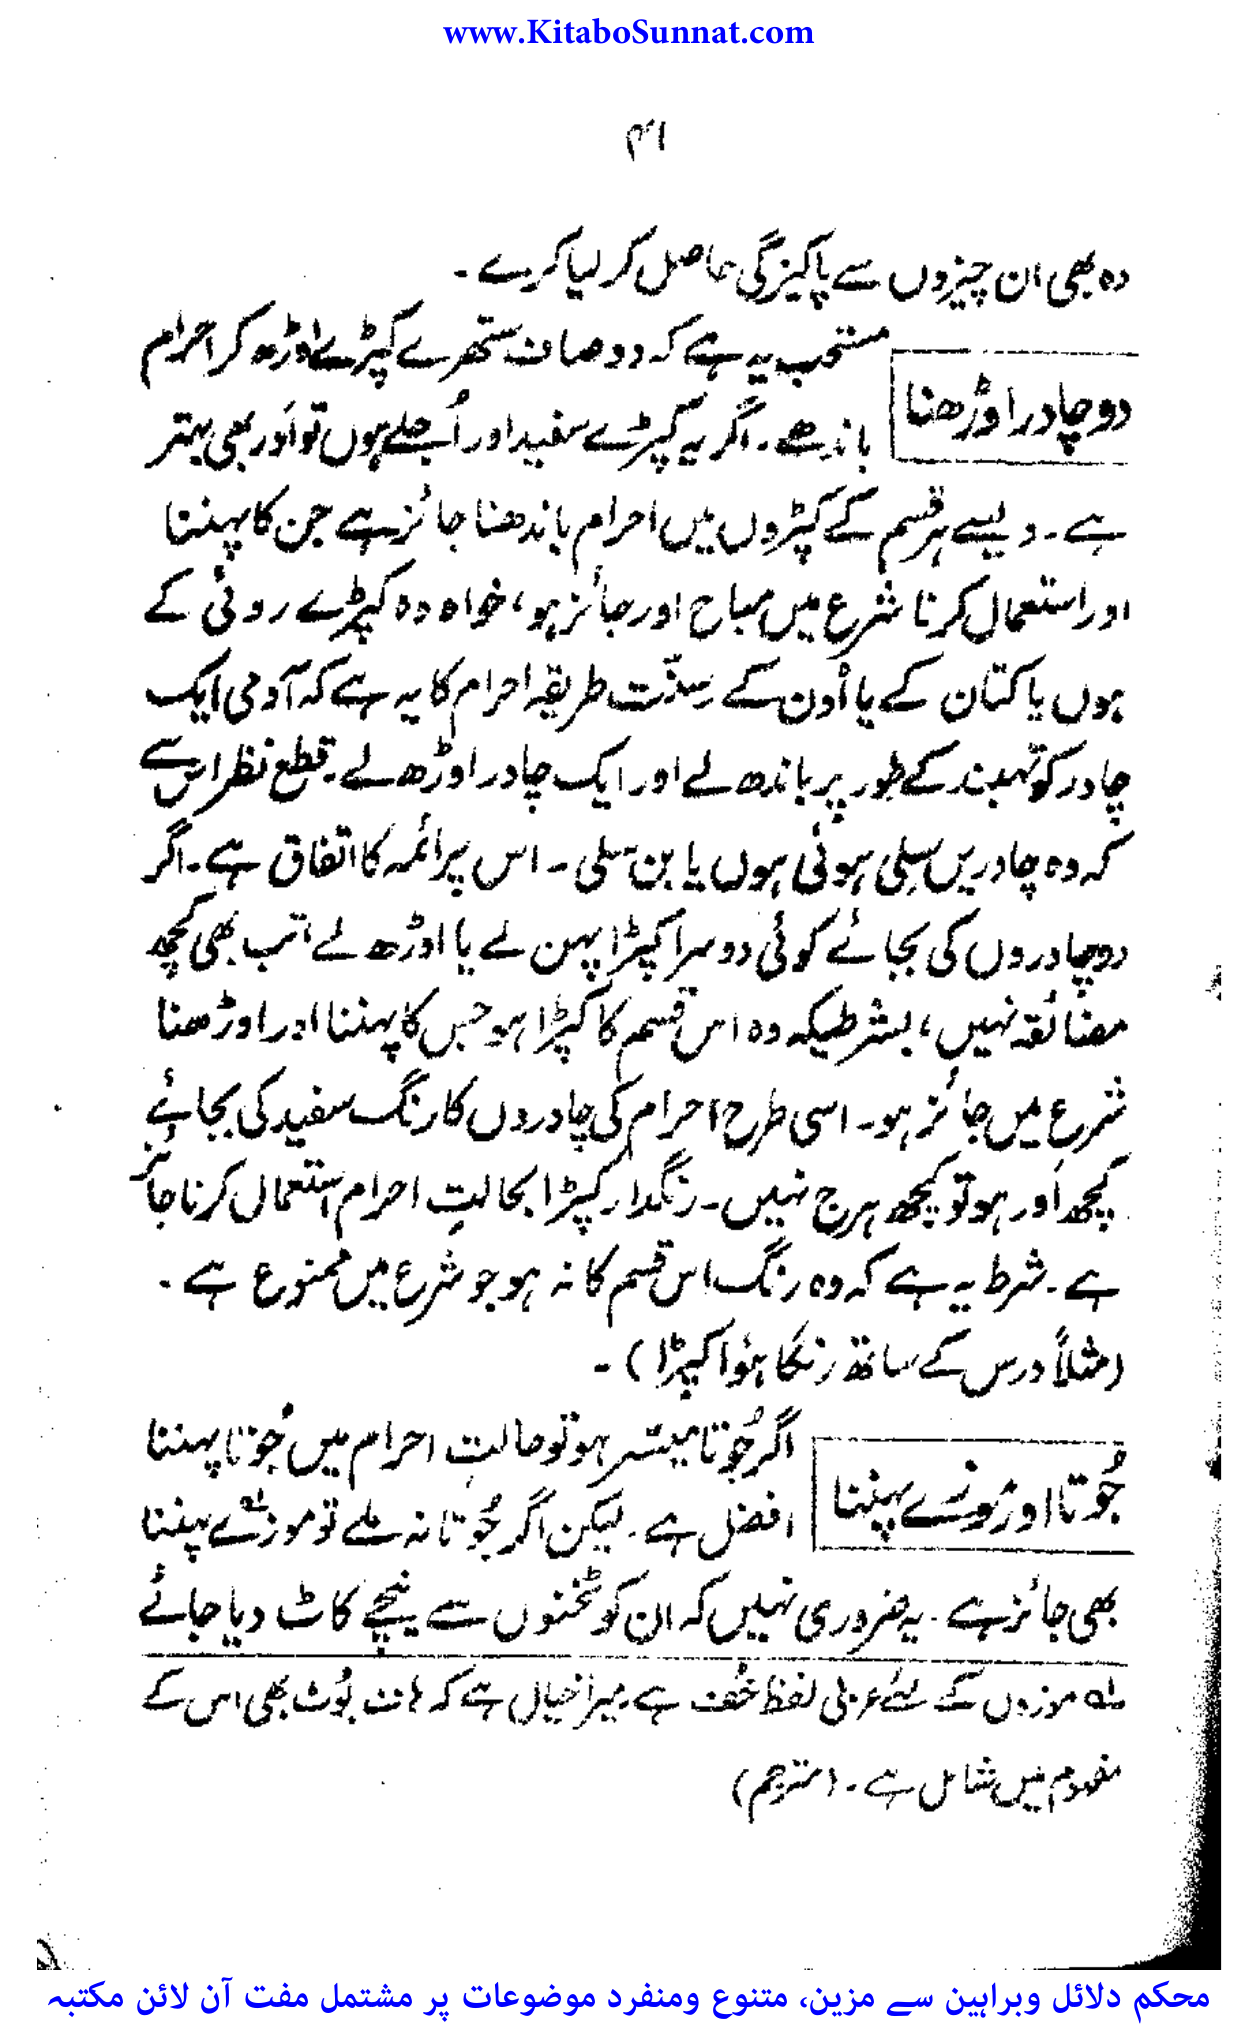 www.KitaboSunnat.com
۴۱
وہ بھی ان چیزوں سے پاکیزگی حاصل کر لیا کرے ۔
دو چادر اوڑھنا
مستحب یہ ہے کہ دو صاف ستھرے کپڑے اوڑھ کر احرام
باندھے ۔ اگر یہ کپڑے سفید اور اُجلے ہوں تو اَور بھی بہتر
ہے ۔ ویسے ہر قسم کے کپڑوں میں احرام باندھنا جائز ہے جن کا پہننا
اور استعمال کرنا شرع میں مباح اور جائز ہو، خواہ وہ کپڑے روئی کے
ہوں یا کتان کے یا اُون کے سنّت طریقہ احرام کا یہ ہے کہ آدمی ایک
چادر کو تہبند کے طور پر باندھ لے اور ایک چادر اوڑھ لے ۔ قطع نظر اس سے
کہ وہ چادریں سِلی ہوئی ہوں یا بن سلی ۔ اس پر ائمہ کا اتفاق ہے ۔ اگر
دو چادروں کی بجائے کوئی دوسرا کپڑا پہن لے یا اوڑھ لے تب بھی کچھ
مضائقہ نہیں، بشرطیکہ وہ اس قسم کا کپڑا ہو جس کا پہننا اور اوڑھنا
شرع میں جائز ہو ۔ اسی طرح احرام کی چادروں کا رنگ سفید کی بجائے
کچھ اَور ہو تو کچھ ہرج نہیں ۔ رنگدار کپڑا بحالتِ احرام استعمال کرنا جائز
ہے ۔ شرط یہ ہے کہ وہ رنگ اس قسم کا نہ ہو جو شرع میں ممنوع ہے ۔
(مثلاً ورس کے ساتھ رنگا ہؤا کپڑا) ۔
جُوتا اور موزے پہننا
اگر جُوتا میسّر ہو تو حالتِ احرام میں جُوتا پہننا
افضل ہے ۔ لیکن اگر جُوتا نہ ملے تو موزے۱ پہننا
بھی جائز ہے ۔ یہ ضروری نہیں کہ ان کو ٹخنوں سے نیچے کاٹ دیا جائے
۱ موزوں کے لئے عربی لفظ خُف ہے میرا خیال ہے کہ ہاف بُوٹ بھی اس کے
مفہوم میں شامل ہے ۔ (مترجم)
محکم دلائل وبراہین سے مزین، متنوع ومنفرد موضوعات پر مشتمل مفت آن لائن مکتبہ